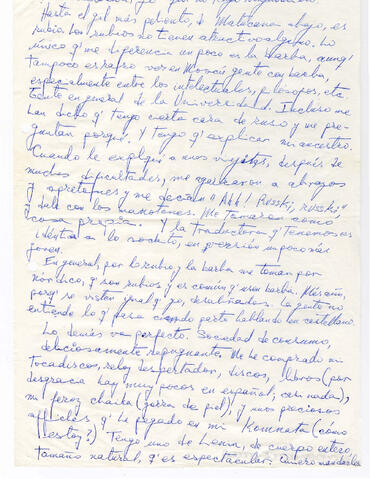 Hasta el gil más peliento, de Matucana abajo, es
rubio. Los rubios no tienen atractivo alguno. Lo
único q' me diferencia un poco es la barba, aunq'
tampoco es raro ver en Moscú gente con barba,
especialmente entre los intelectuales, filósofos, eta
gente en general de la Universidad. Incluso me
han dicho q' tengo cierta cara de ruso y me pre-
guntan porqué. Y tengo q' explicar mi ancestro.
Cuando le expliqué a unos viejitos, después de
muchas dificultades, me agarraron a abrazos
y apretones y me decían "Ahh! Russki, russki,"
y dale con los manotones. Me tomaron como
cosa propia. Y la traductora y Tenemos es
 a lo  , en versión un poco más
joven.
En general, por lo rubio y la barba me toman por
nórdico, q' son rubios y es común q' usen barba. Más aún,
porq' se visten igual q' yo, desaliñados. La gente no
entiende lo q' pasa cuando parto hablando en castellano.
Lo demás va perfecto. Sociedad de consumo,
deliciosamente repugnante. Me he comprado mi
tocadiscos, reloj despertador, discos, libros (por
desgracia hay muy pocos en español, casi nada),
mi feroz chapka (gorra de piel), y unos preciosos
affiches, q' he pegado en mi Komnata (cómo
estoy?) Tengo uno de Lenin, de cuerpo entero
tamaño natural, q' es espectacular. Quiero mandarles